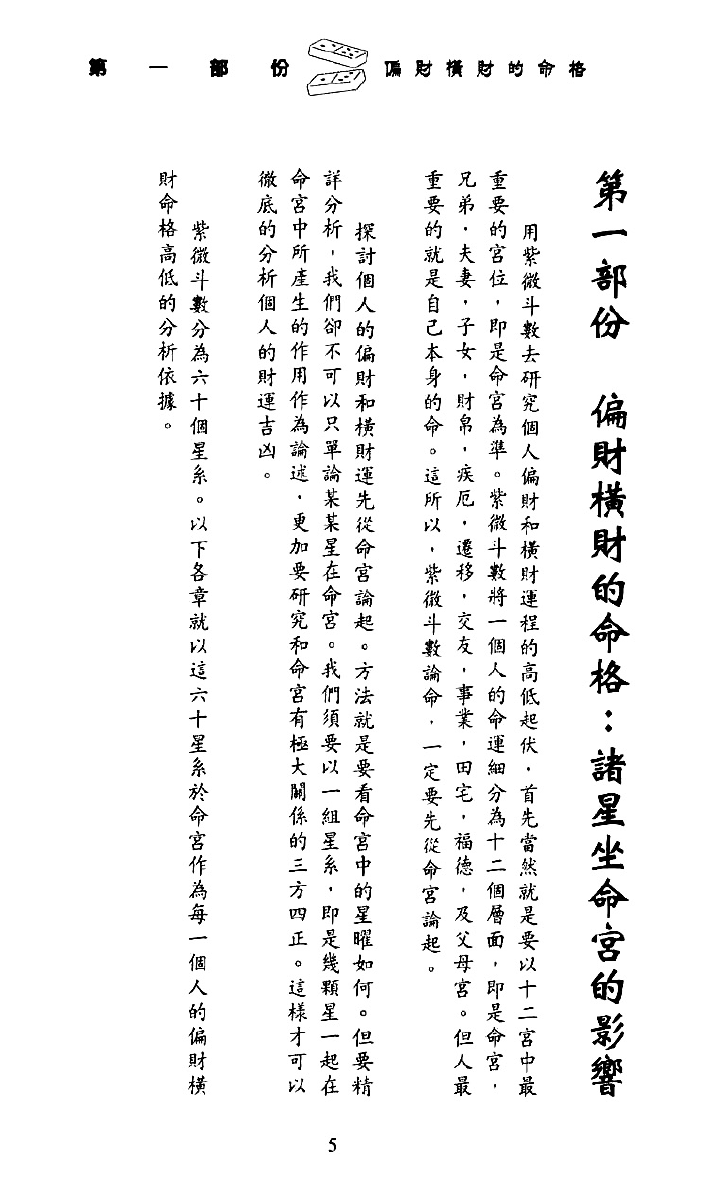 第一部份 偏財橫財的命格
第一部份 偏財橫財的命格：諸星坐命宮的影響
用紫微斗數去研究個人偏財和橫財運程的高低起伏，首先當然就是要以十二宮中最
重要的宮位，即是命宮為準。紫微斗數將一個人的命運細分為十二個層面，即是命宮，
兄弟，夫妻，子女，財帛，疾厄，遷移，交友，事業，田宅，福德，及父母宮。但人最
重要的就是自己本身的命。這所以，紫微斗數論命，一定要先從命宮論起。
探討個人的偏財和橫財運先從命宮論起。方法就是要看命宮中的星曜如何。但要精
詳分析，我們卻不可以只單論某某星在命宮。我們須要以一組星系，即是幾顆星一起在
命宮中所產生的作用作為論述，更加要研究和命宮有極大關係的三方四正。這樣才可以
徹底的分析個人的財運吉凶。
紫微斗數分為六十個星系。以下各章就以這六十星系於命宮作為每一個人的偏財橫
財命格高低的分析依據。
5